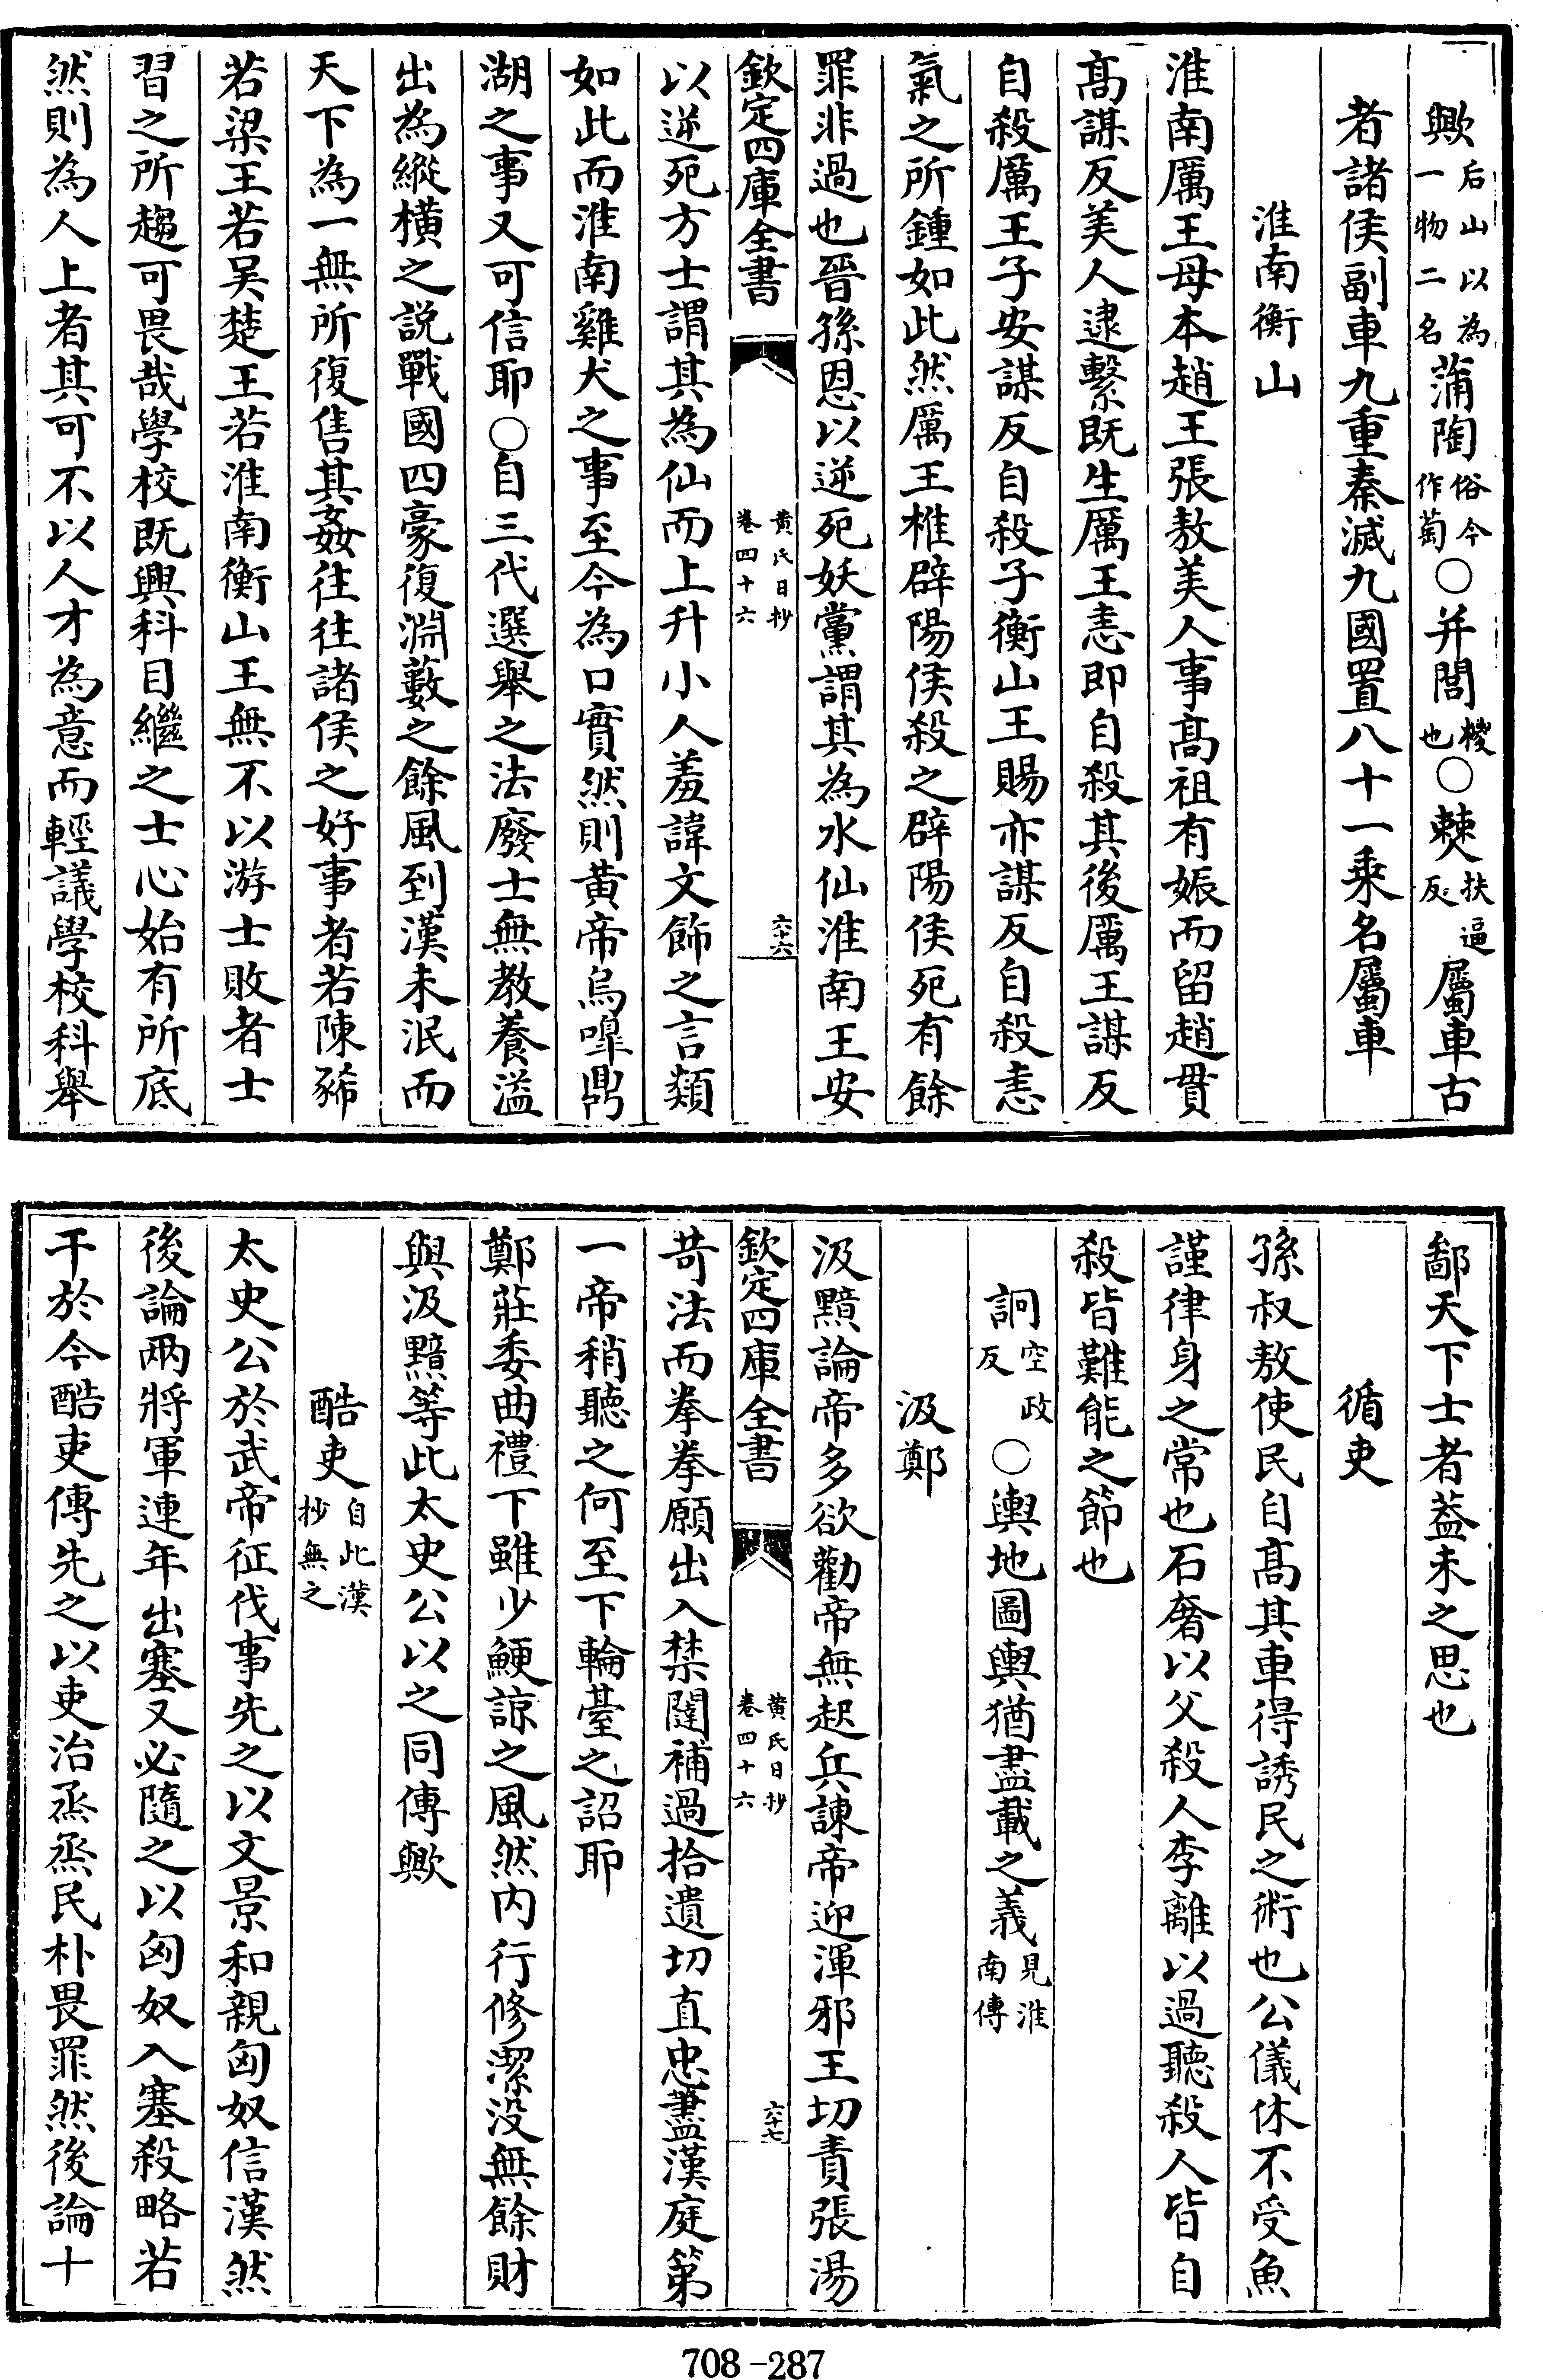 歟后山以為一物二名蒲陶俗今作萄○并閭椶也○㯤扶逼反屬車古
者諸侯副車九重秦滅九國置八十一乘名屬車
淮南衡山
淮南厲王母本趙王張敖美人事髙祖有娠而留趙貫
髙謀反美人逮繫既生厲王恚即自殺其後厲王謀反
自殺厲王子安謀反自殺子衡山王賜亦謀反自殺恚
氣之所鍾如此然厲王椎辟陽侯殺之辟陽侯死有餘
罪非過也晉孫恩以逆死妖黨謂其為水仙淮南王安
欽定四庫全書 黄氏日抄 卷四十六 六十六
以逆死方士謂其為仙而上升小人羞諱文飾之言類
如此而淮南雞犬之事至今為口實然則黄帝烏嘷鼎
湖之事又可信耶○自三代選舉之法廢士無教養溢
出為縱横之説戰國四豪復淵藪之餘風到漢未泯而
天下為一無所復售其姦往往諸侯之好事者若陳豨
若梁王若吴楚王若淮南衡山王無不以游士敗者士
習之所趨可畏哉學校既興科目繼之士心始有所底
然則為人上者其可不以人才為意而輕議學校科舉
鄙天下士者葢未之思也
循吏
孫叔敖使民自髙其車得誘民之術也公儀休不受魚
謹律身之常也石奢以父殺人李離以過聽殺人皆自
殺皆難能之節也
詗空政反○輿地圖輿猶盡載之義見淮南傳
汲鄭
汲黯論帝多欲勸帝無起兵諫帝迎渾邪王切責張湯
欽定四庫全書 黄氏日抄 卷四十六 六十七
苛法而拳拳願出入禁闥補過拾遺切直忠藎漢庭第
一帝稍聽之何至下輪臺之詔耶
鄭莊委曲禮下雖少鯁諒之風然内行修潔没無餘財
與汲黯等此太史公以之同傳歟
酷吏自此漢抄無之
太史公於武帝征伐事先之以文景和親匈奴信漢然
後論兩將軍連年出塞又必隨之以匈奴入塞殺略若
干於今酷吏傳先之以吏治烝烝民朴畏罪然後論十
708-287